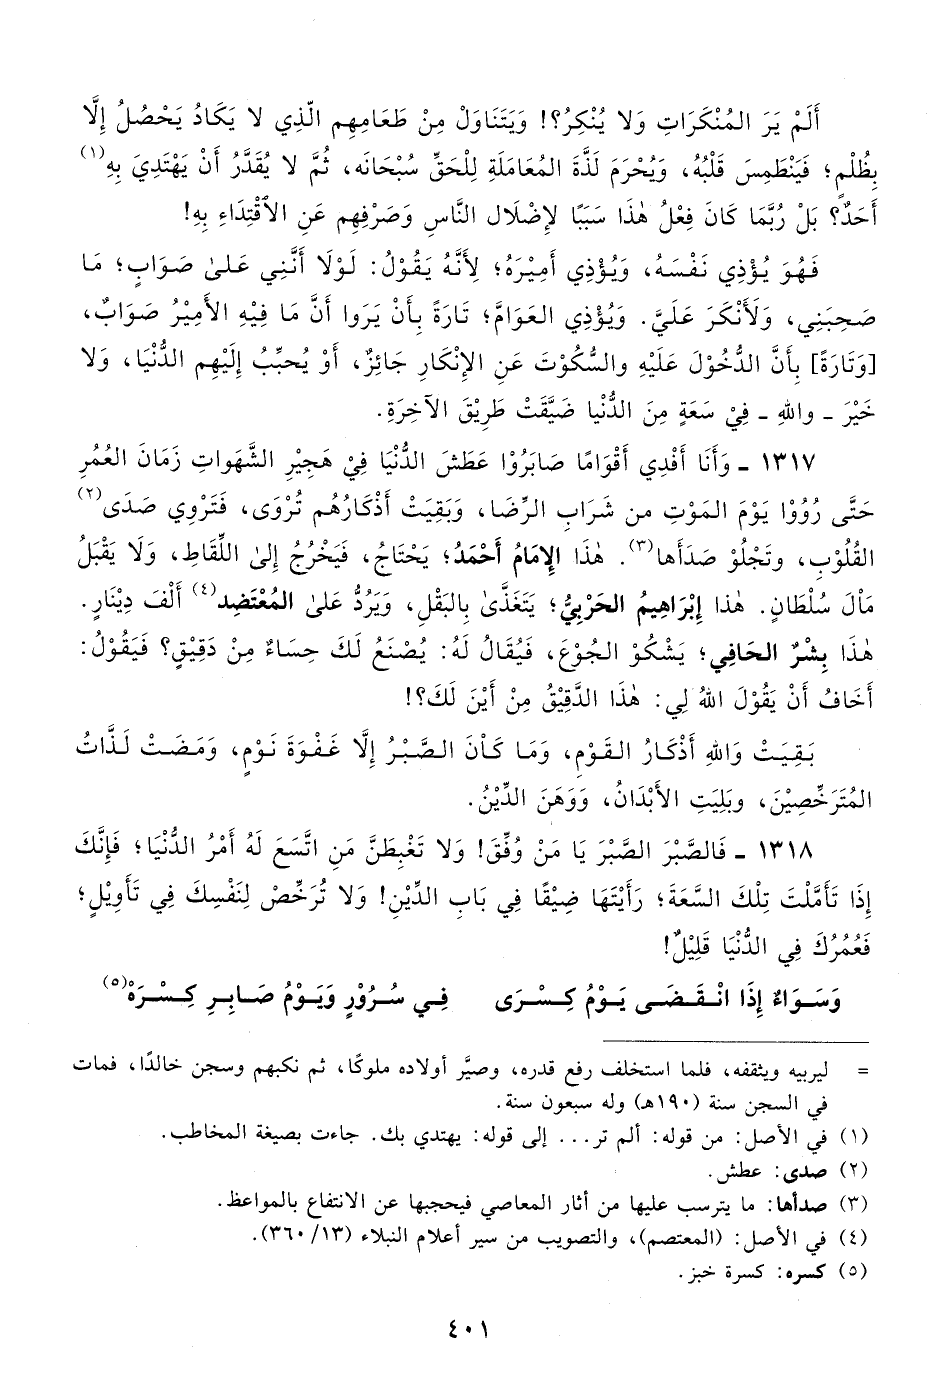 أَلَمْ يَرَ المُنْكَرَاتِ وَلا يُنْكِرُ؟! وَيَتَنَاوَلْ مِنْ طَعَامِهِم الَّذِي لا يَكَادُ يَحْصُلُ إِلَّا
بِظُلْمٍ؛ فَيَنْطَمِسَ قَلْبُهُ، وَيُحْرَمَ لَذَّةَ المُعَامَلَةِ لِلْحَقِّ سُبْحَانَه، ثُمَّ لا يُقَدَّرُ أَنْ يَهْتَدِيَ بِهِ(١)
أَحَدٌ؟ بَلْ رُبَّمَا كَانَ فِعْلُ هٰذَا سَبَبًا لإِضْلَال النَّاسِ وَصَرْفِهِم عَنِ الاقْتِدَاءِ بِهِ!
فَهُوَ يُؤْذِي نَفْسَهُ، وَيُؤْذِي أَمِيْرَهُ؛ لِأَنَّهُ يَقُوْلُ: لَوْلَا أَنَّنِي عَلىٰ صَوَابٍ؛ مَا
صَحِبَنِي، وَلَأَنْكَرَ عَلَيَّ. وَيُؤْذِي العَوَامَّ؛ تَارَةً بِأَنْ يَرَوا أَنَّ مَا فِيْهِ الأَمِيْرُ صَوَابٌ،
[وَتَارَةً] بِأَنَّ الدُّخُوْلَ عَلَيْهِ والسُّكُوْتَ عَنِ الإِنْكَارِ جَائِزٌ، أَوْ يُحَبِّبُ إِلَيْهِم الدُّنْيَا، وَلا
خَيْرَ - واللهِ - فِيْ سَعَةٍ مِنَ الدُّنْيا ضَيَّقَتْ طَرِيْقَ الآخِرَةِ.
١٣١٧ - وَأَنَا أَفْدِي أَقْوَامًا صَابَرُوْا عَطَشَ الدُّنْيَا فِيْ هَجِيْرِ الشَّهَواتِ زَمَانَ العُمُرِ
حَتَّى رُوُوْا يَوْمَ المَوْتِ من شَرابِ الرِّضَا، وَبَقِيَتْ أَذْكَارُهُم تُرْوَى، فَتَرْوِي صَدَى(٢)
القُلُوْبِ، وتَجْلُوْ صَدَأَها(٣). هٰذَا الإِمَامُ أَحْمَدُ؛ يَحْتَاجُ، فَيَخْرُجُ إِلىٰ اللِّقَاطِ، وَلَا يَقْبَلُ
مَالَ سُلْطَانٍ. هٰذا إِبْرَاهِيمُ الحَرْبِيُّ؛ يَتَغَذَّىٰ بِالبَقْلِ، وَيَرُدُّ عَلىٰ المُعْتَضِد(٤) أَلْفَ دِيْنَارٍ.
هٰذَا بِشْرٌ الحَافِي؛ يَشْكُوْ الجُوْعَ، فَيُقَالُ لَهُ: يُصْنَعُ لَكَ حِسَاءٌ مِنْ دَقِيْقٍ؟ فَيَقُوْلُ:
أَخَافُ أَنْ يَقُوْلَ اللهُ لِي: هٰذَا الدَّقِيْقُ مِنْ أَيْنَ لَكَ؟!
بَقِيَتْ وَاللهِ أَذْكَارُ القَوْمِ، وَمَا كَانَ الصَّبْرُ إِلَّا غَفْوَةَ نَوْمٍ، وَمَضَتْ لَذَّاتُ
المُتَرَخِّصِيْنَ، وبَلِيَتِ الأَبْدَانُ، وَوَهَنَ الدِّيْنُ.
١٣١٨ - فَالصَّبْرَ الصَّبْرَ يَا مَنْ وُفِّقَ! وَلا تَغْبِطَنَّ مَنِ اتَّسَعَ لَهُ أَمْرُ الدُّنْيَا؛ فَإِنَّكَ
إِذَا تَأَمَّلْتَ تِلْكَ السَّعَةَ؛ رَأَيْتَهَا ضِيْقًا فِي بَابِ الدِّيْنِ! وَلا تُرَخِّصْ لِنَفْسِكَ فِي تَأْوِيْلٍ؛
فَعُمُرُكَ فِي الدُّنْيَا قَلِيْلٌ!
وَسَوَاءٌ إِذَا انْقَضَى يَوْمُ كِسْرَى    فِي سُرُوْرٍ وَيَوْمُ صَابِرِ كِسْرَهْ(٥)
= ليربيه ويثقفه، فلما استخلف رفع قدره، وصيَّر أولاده ملوكًا، ثم نكبهم وسجن خالدًا، فمات
في السجن سنة (١٩٠هـ) وله سبعون سنة.
(١) في الأصل: من قوله: ألم تر... إلى قوله: يهتدي بك. جاءت بصيغة المخاطب.
(٢) صدى: عطش.
(٣) صدأها: ما يترسب عليها من أثار المعاصي فيحجبها عن الانتفاع بالمواعظ.
(٤) في الأصل: (المعتصم)، والتصويب من سير أعلام النبلاء (١٣/ ٣٦٠).
(٥) كسره: كسرة خبز.
٤٠١